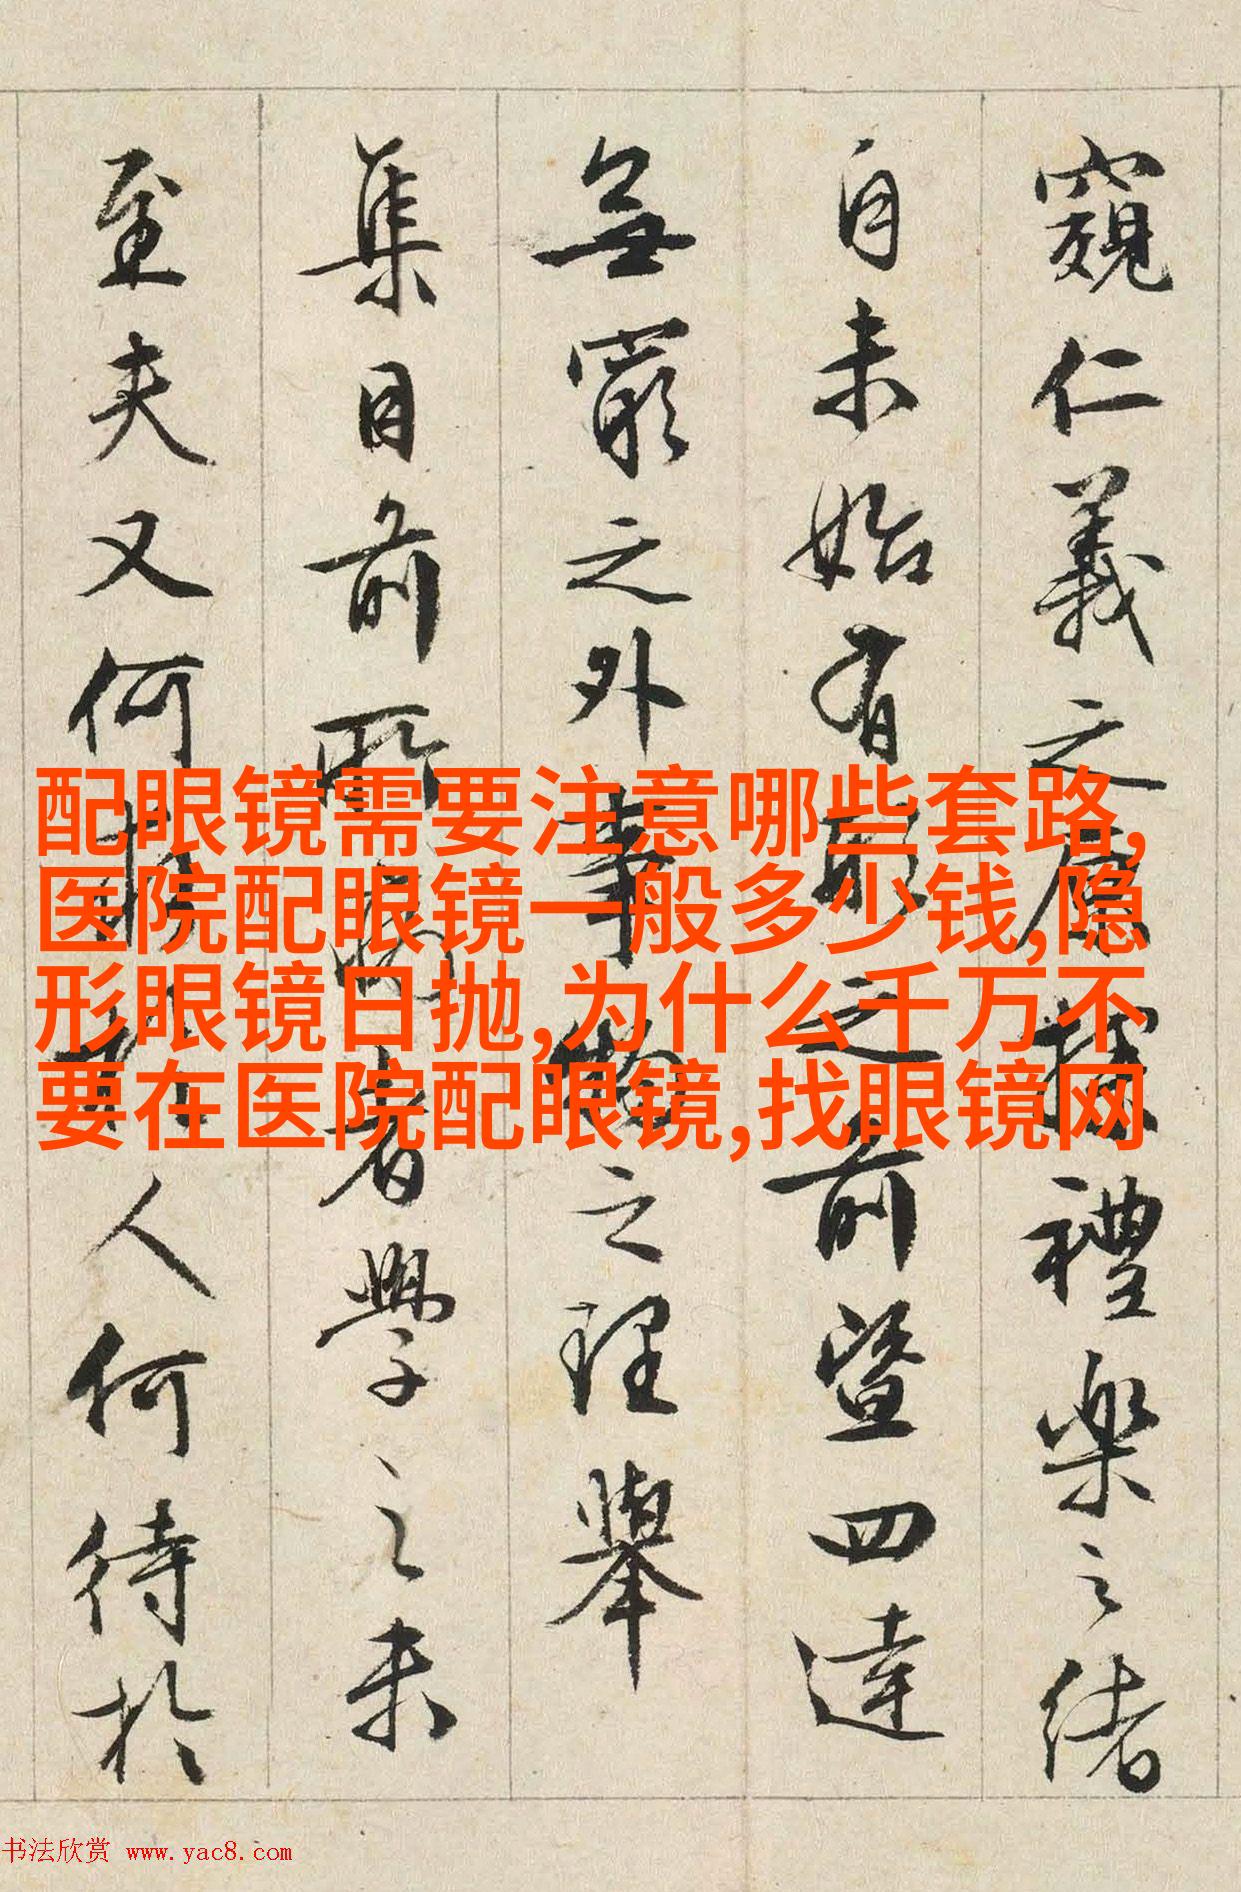 窺仁義之原探禮樂之緒
自未始有形之前暨四達
無窮之外事物之理舉
集目前所病者學之未
至夫又何人何待於
配眼镜需要注意哪些套路,
医院配眼镜一般多少钱,隐
形眼镜日抛,为什么千万不
要在医院配眼镜,找眼镜网
书法欣赏 www.yac8.com